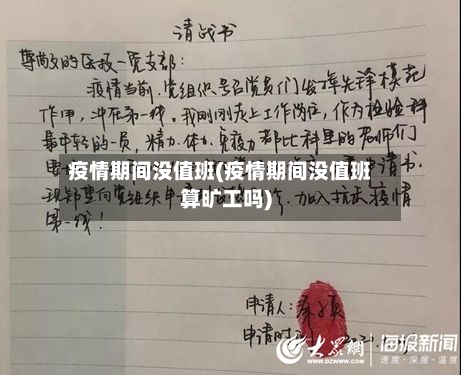 请战书
尊敬的医技一党支部:
疫情当前,党组织号召党员们发挥先锋模范
作用,冲在第一线。我刚刚走上工作岗位,作为检验科
最年轻的一员,精力、体力、免疫力都比科里的老师们
疫情期间没值班(疫情期间没值班
算旷工吗)
申请书.
现郑重向党组织申
加入抗击疫情
第一线!
申请人:
申请时
大众网 海报新闻
www.dzwww.com 速度·深度·温度